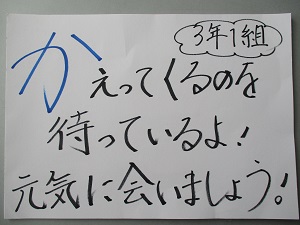 3年1組
かえってくるのを
待っているよ!
元気に会いましょう!